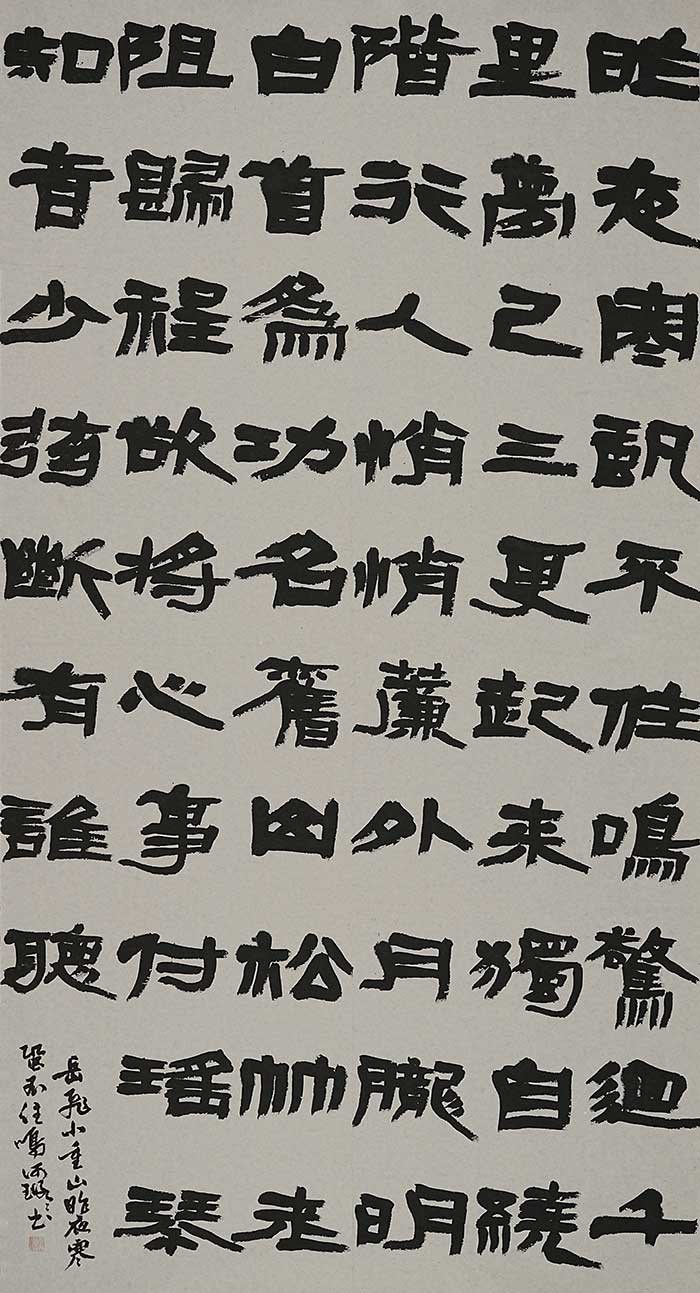 昨夜寒蛩不住鳴驚迴千
里夢已三更起來獨自繞
階行人悄悄簾外月朧明
白首為功名舊山松竹老
阻歸程欲將心事付瑤琴
知音少弦斷有誰聽
岳飛小重山昨夜寒
蛩不住鳴書